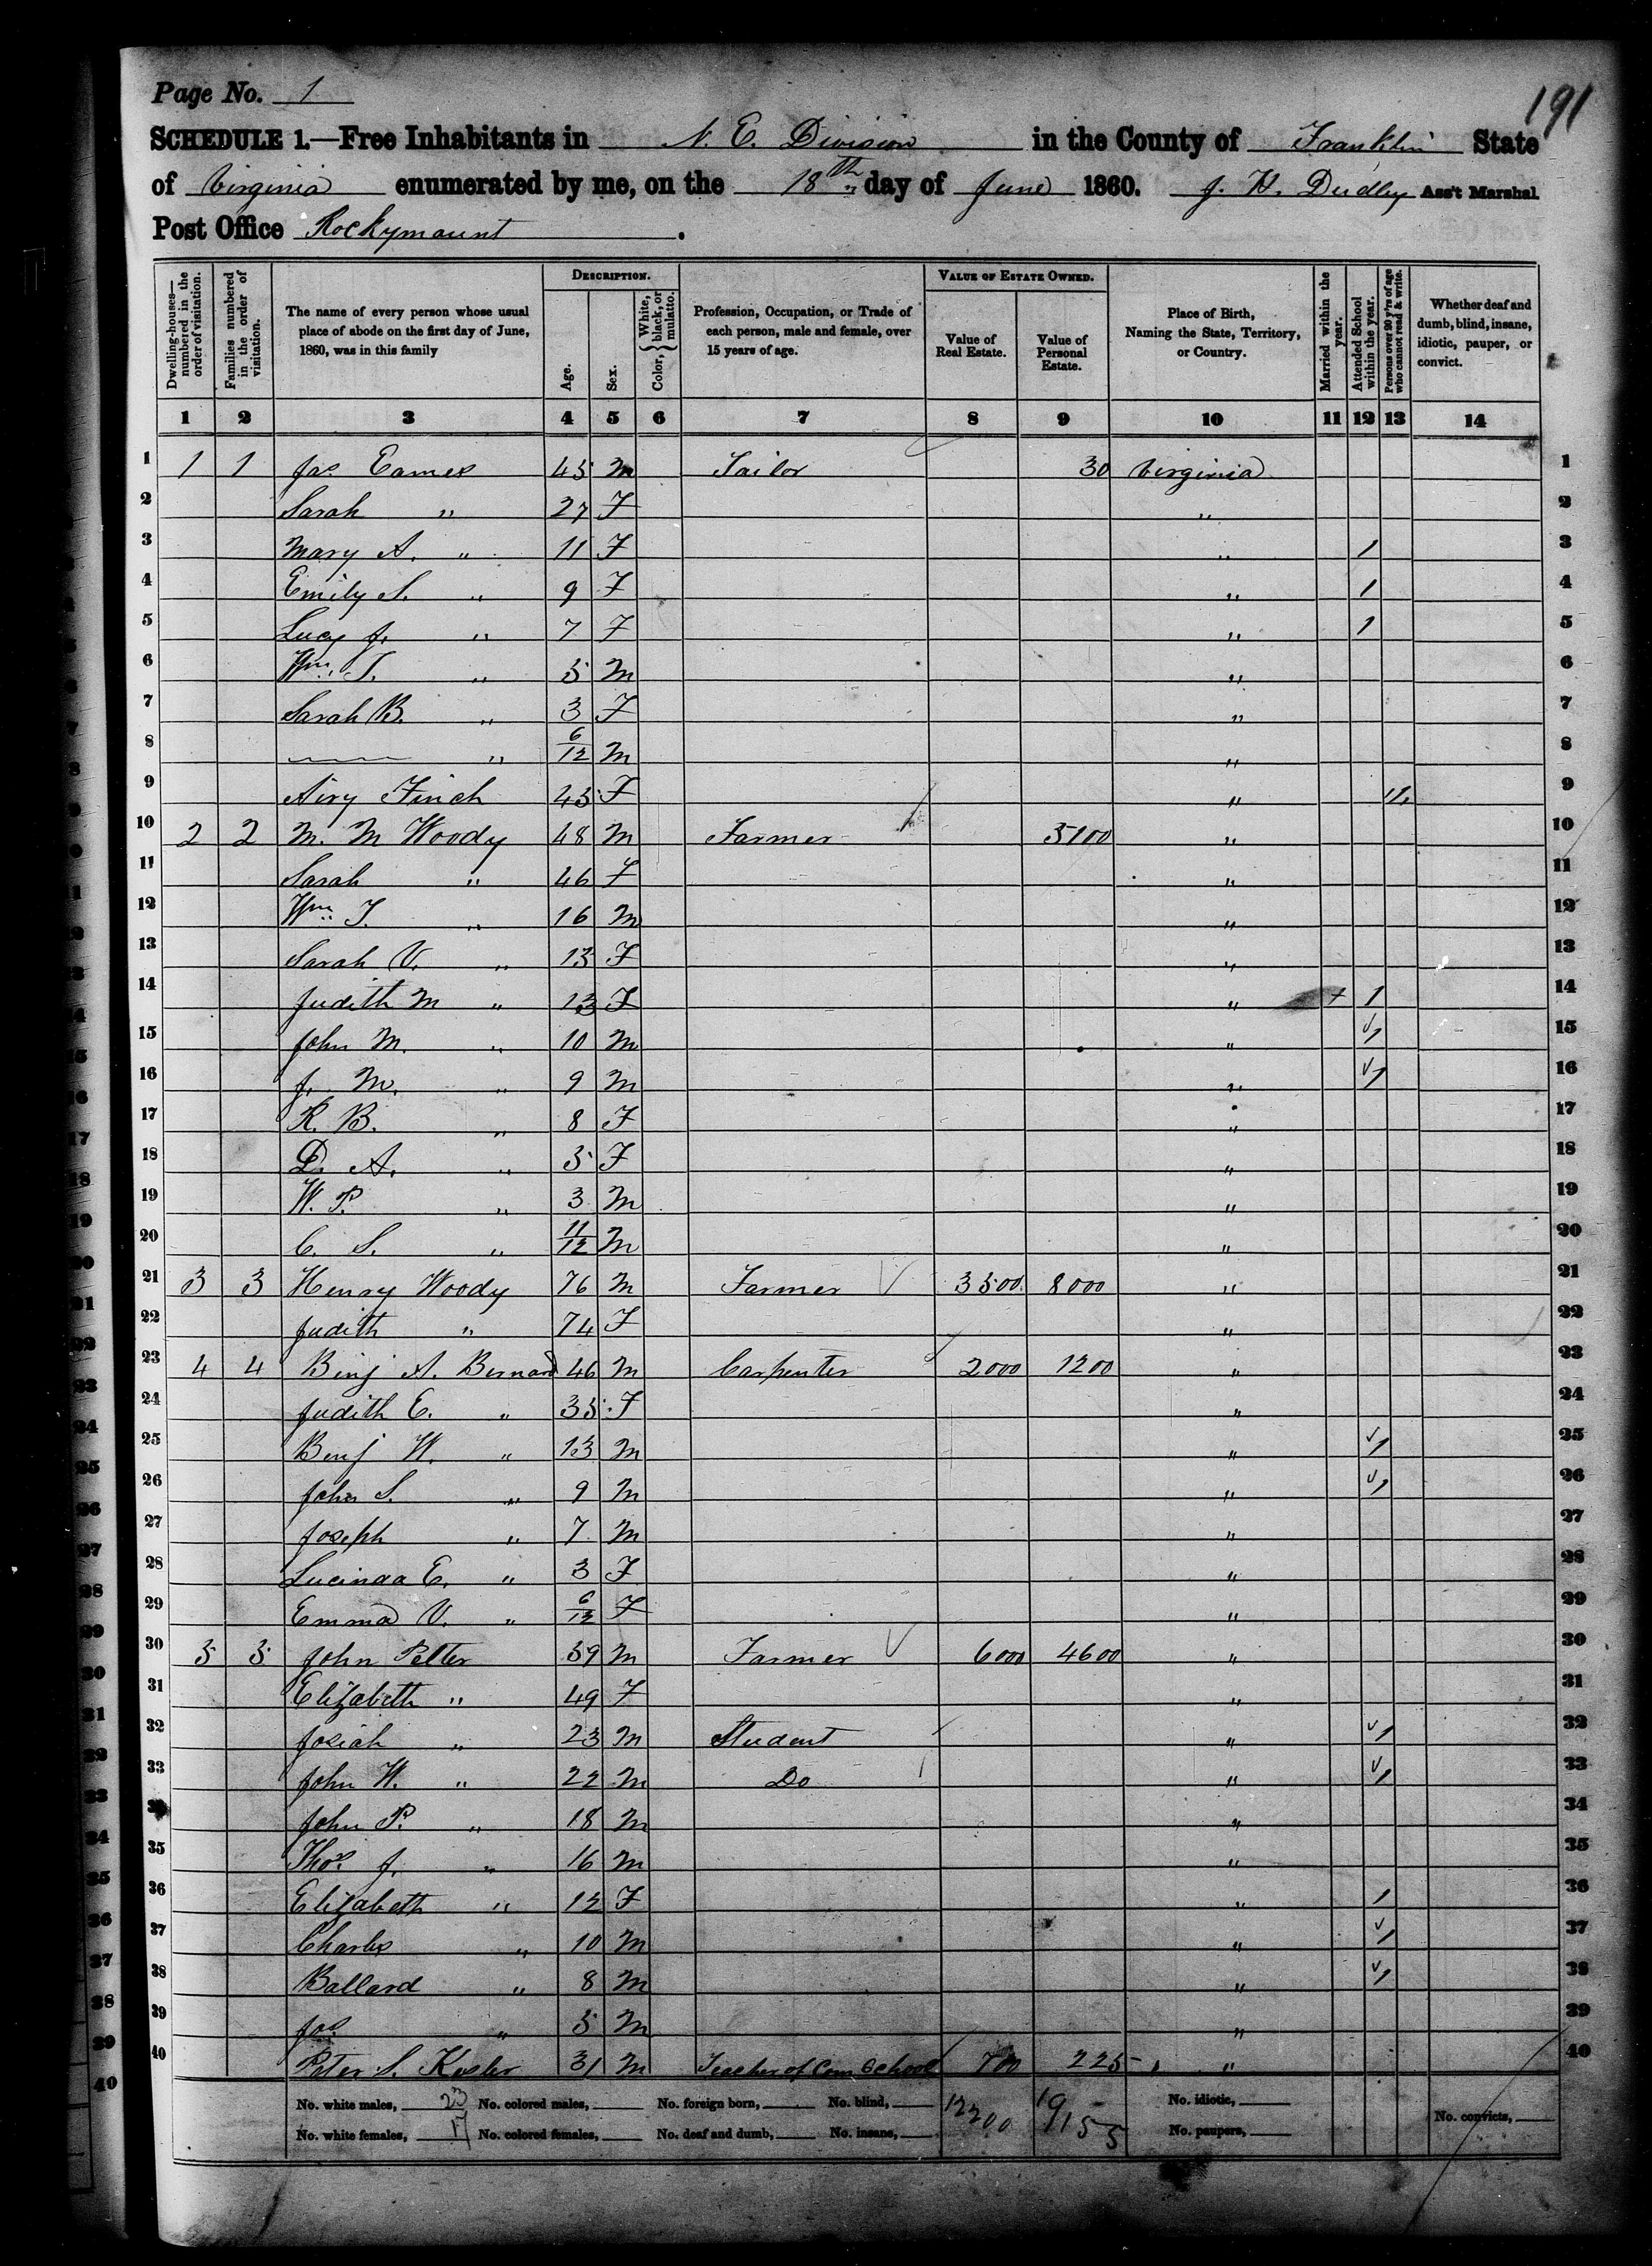 Page No. 1
191
SCHEDULE 1.—Free Inhabitants in N. E. Division in the County of Franklin State
of Virginia enumerated by me, on the 18th day of June 1860. J. H. Dudley Ass't Marshal
Post Office Rockymount.
Dwelling-houses—numbered in the order of visitation. Families numbered in the order of visitation. The name of every person whose usual place of abode on the first day of June, 1860, was in this family DESCRIPTION. Age. Sex. Color, { White, black, or mulatto. Profession, Occupation, or Trade of each person, male and female, over 15 years of age. VALUE OF ESTATE OWNED. Value of Real Estate. Value of Personal Estate. Place of Birth, Naming the State, Territory, or Country. Married within the year. Attended School within the year. Persons over 20 y'rs of age who cannot read & write. Whether deaf and dumb, blind, insane, idiotic, pauper, or convict.
1 2 3 4 5 6 7 8 9 10 11 12 13 14
1 1 1 Jas Eames 45 M Tailor 30 Virginia 1
2 Sarah " 27 F " 2
3 Mary A. " 11 F " 1 3
4 Emily S. " 9 F " 1 4
5 Lucy J. " 7 F " 1 5
6 Wm. T. " 5 M " 6
7 Sarah B. " 3 F " 7
8 —— " 6/12 M " 8
9 Airy Finch 45 F " 1 9
10 2 2 M. M Woody 48 M Farmer 5100 " 10
11 Sarah " 46 F " 11
12 Wm T. " 16 M " 12
13 Sarah V. " 15 F " 13
14 Judith M " 13 F " + 1 14
15 John M. " 10 M " 1 15
16 J. M. " 9 M " 1 16
17 R. B. " 8 F " 17
18 D. A. " 5 F " 18
19 W. P. " 3 M " 19
20 C. S. " 11/12 M " 20
21 3 3 Henry Woody 76 M Farmer 3500 8000 " 21
22 Judith " 74 F " 22
23 4 4 Binj A. Bernard 46 M Carpenter 2000 1200 " 23
24 Judith E. " 35 F " 24
25 Benj W. " 13 M " 1 25
26 John S. " 9 M " 1 26
27 Joseph " 7 M " 27
28 Lucinda E. " 3 F " 28
29 Emma V. " 6/12 F " 29
30 5 5 John Pelter 59 M Farmer 6000 4600 " 30
31 Elizabeth " 49 F " 31
32 Josiah " 23 M Student " 1 32
33 John W. " 22 M Do " 1 33
John P. " 18 M " 34
35 Thos J. " 16 M " 35
36 Elizabeth " 12 F " 1 36
37 Charles " 10 M " 1 37
38 Ballard " 8 M " 1 38
39 Jas. " 5 M " 39
40 Peter S. Kesler 31 M Teacher of Com School 700 225 " 40
No. white males, 23 No. colored males, No. foreign born, No. blind, 12200 19155 No. idiotic,
No. white females, 17 No. colored females, No. deaf and dumb, No. insane, No. paupers, No. convicts,